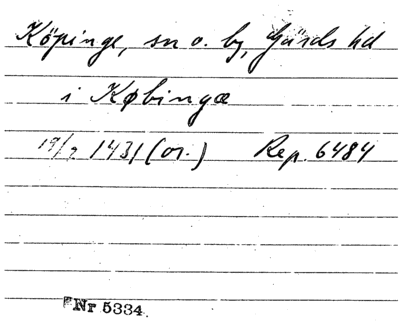 Köpinge, sn o. by, Gärds hd
i Købingæ
19/7 1431 (or.) Rep. 6484
Nr 5334.